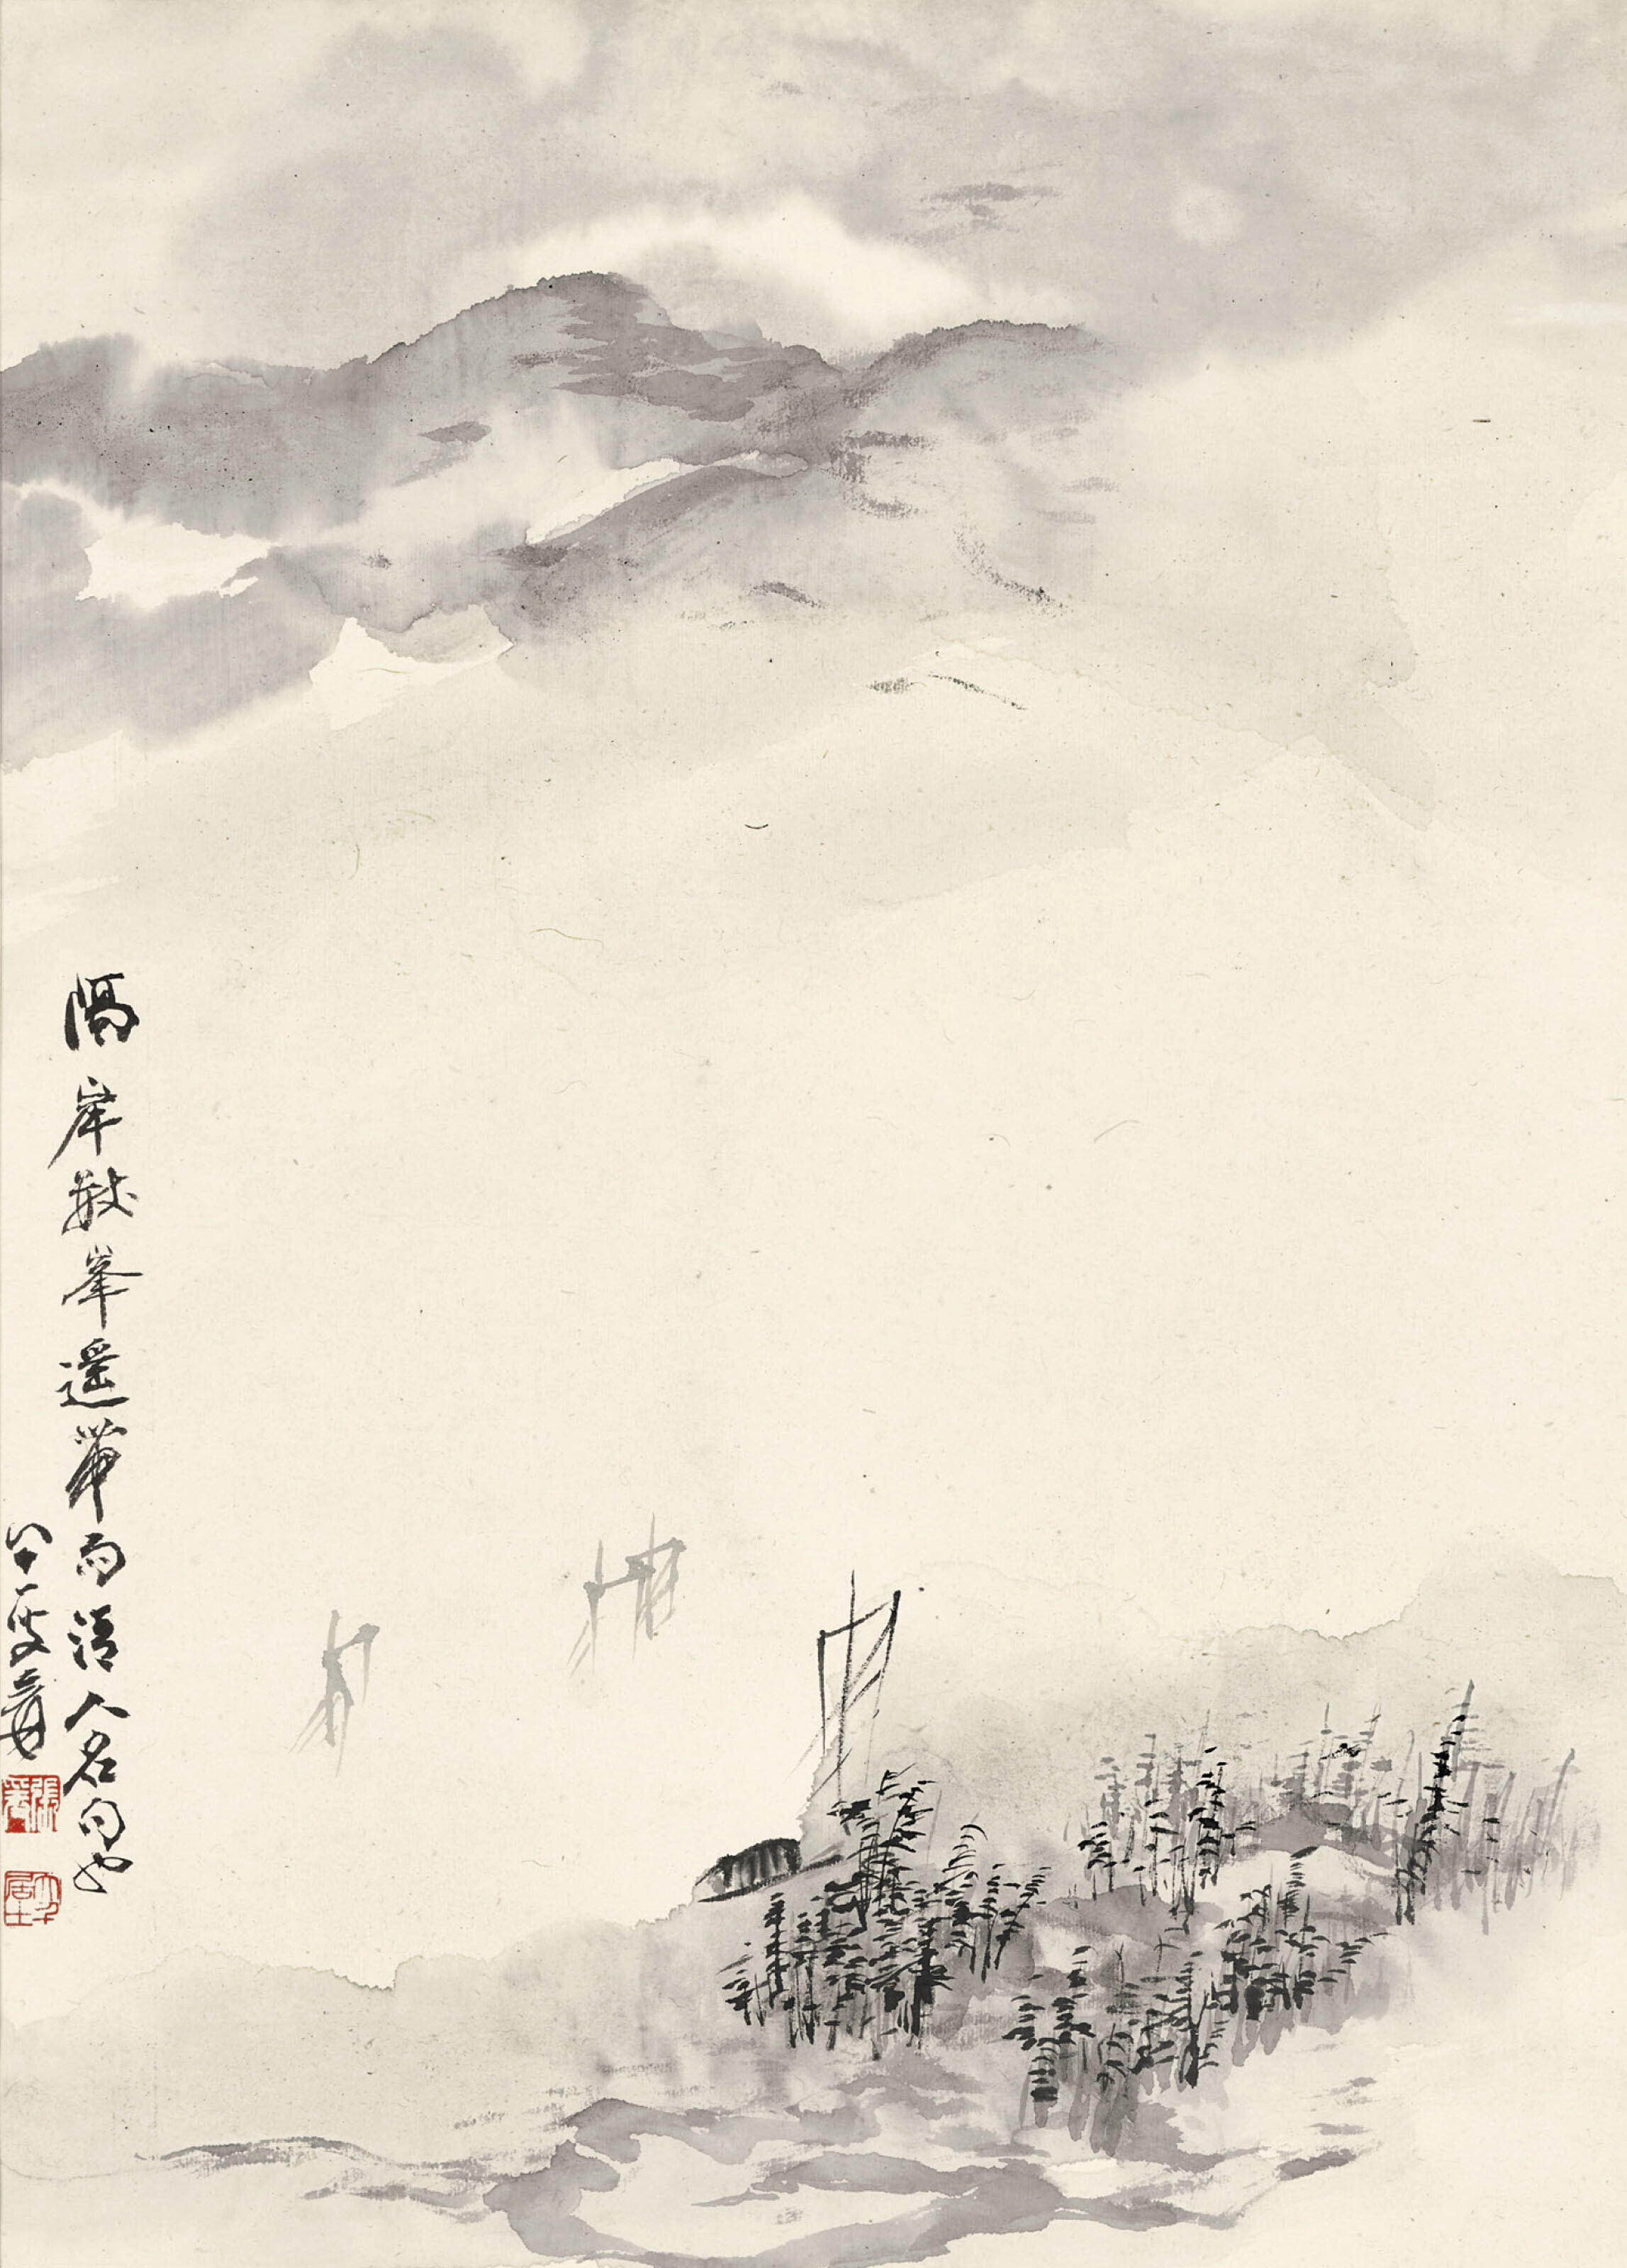 隔岸數峯遙帶雨清人名句也
八十一叟爰
張爰
大千居士